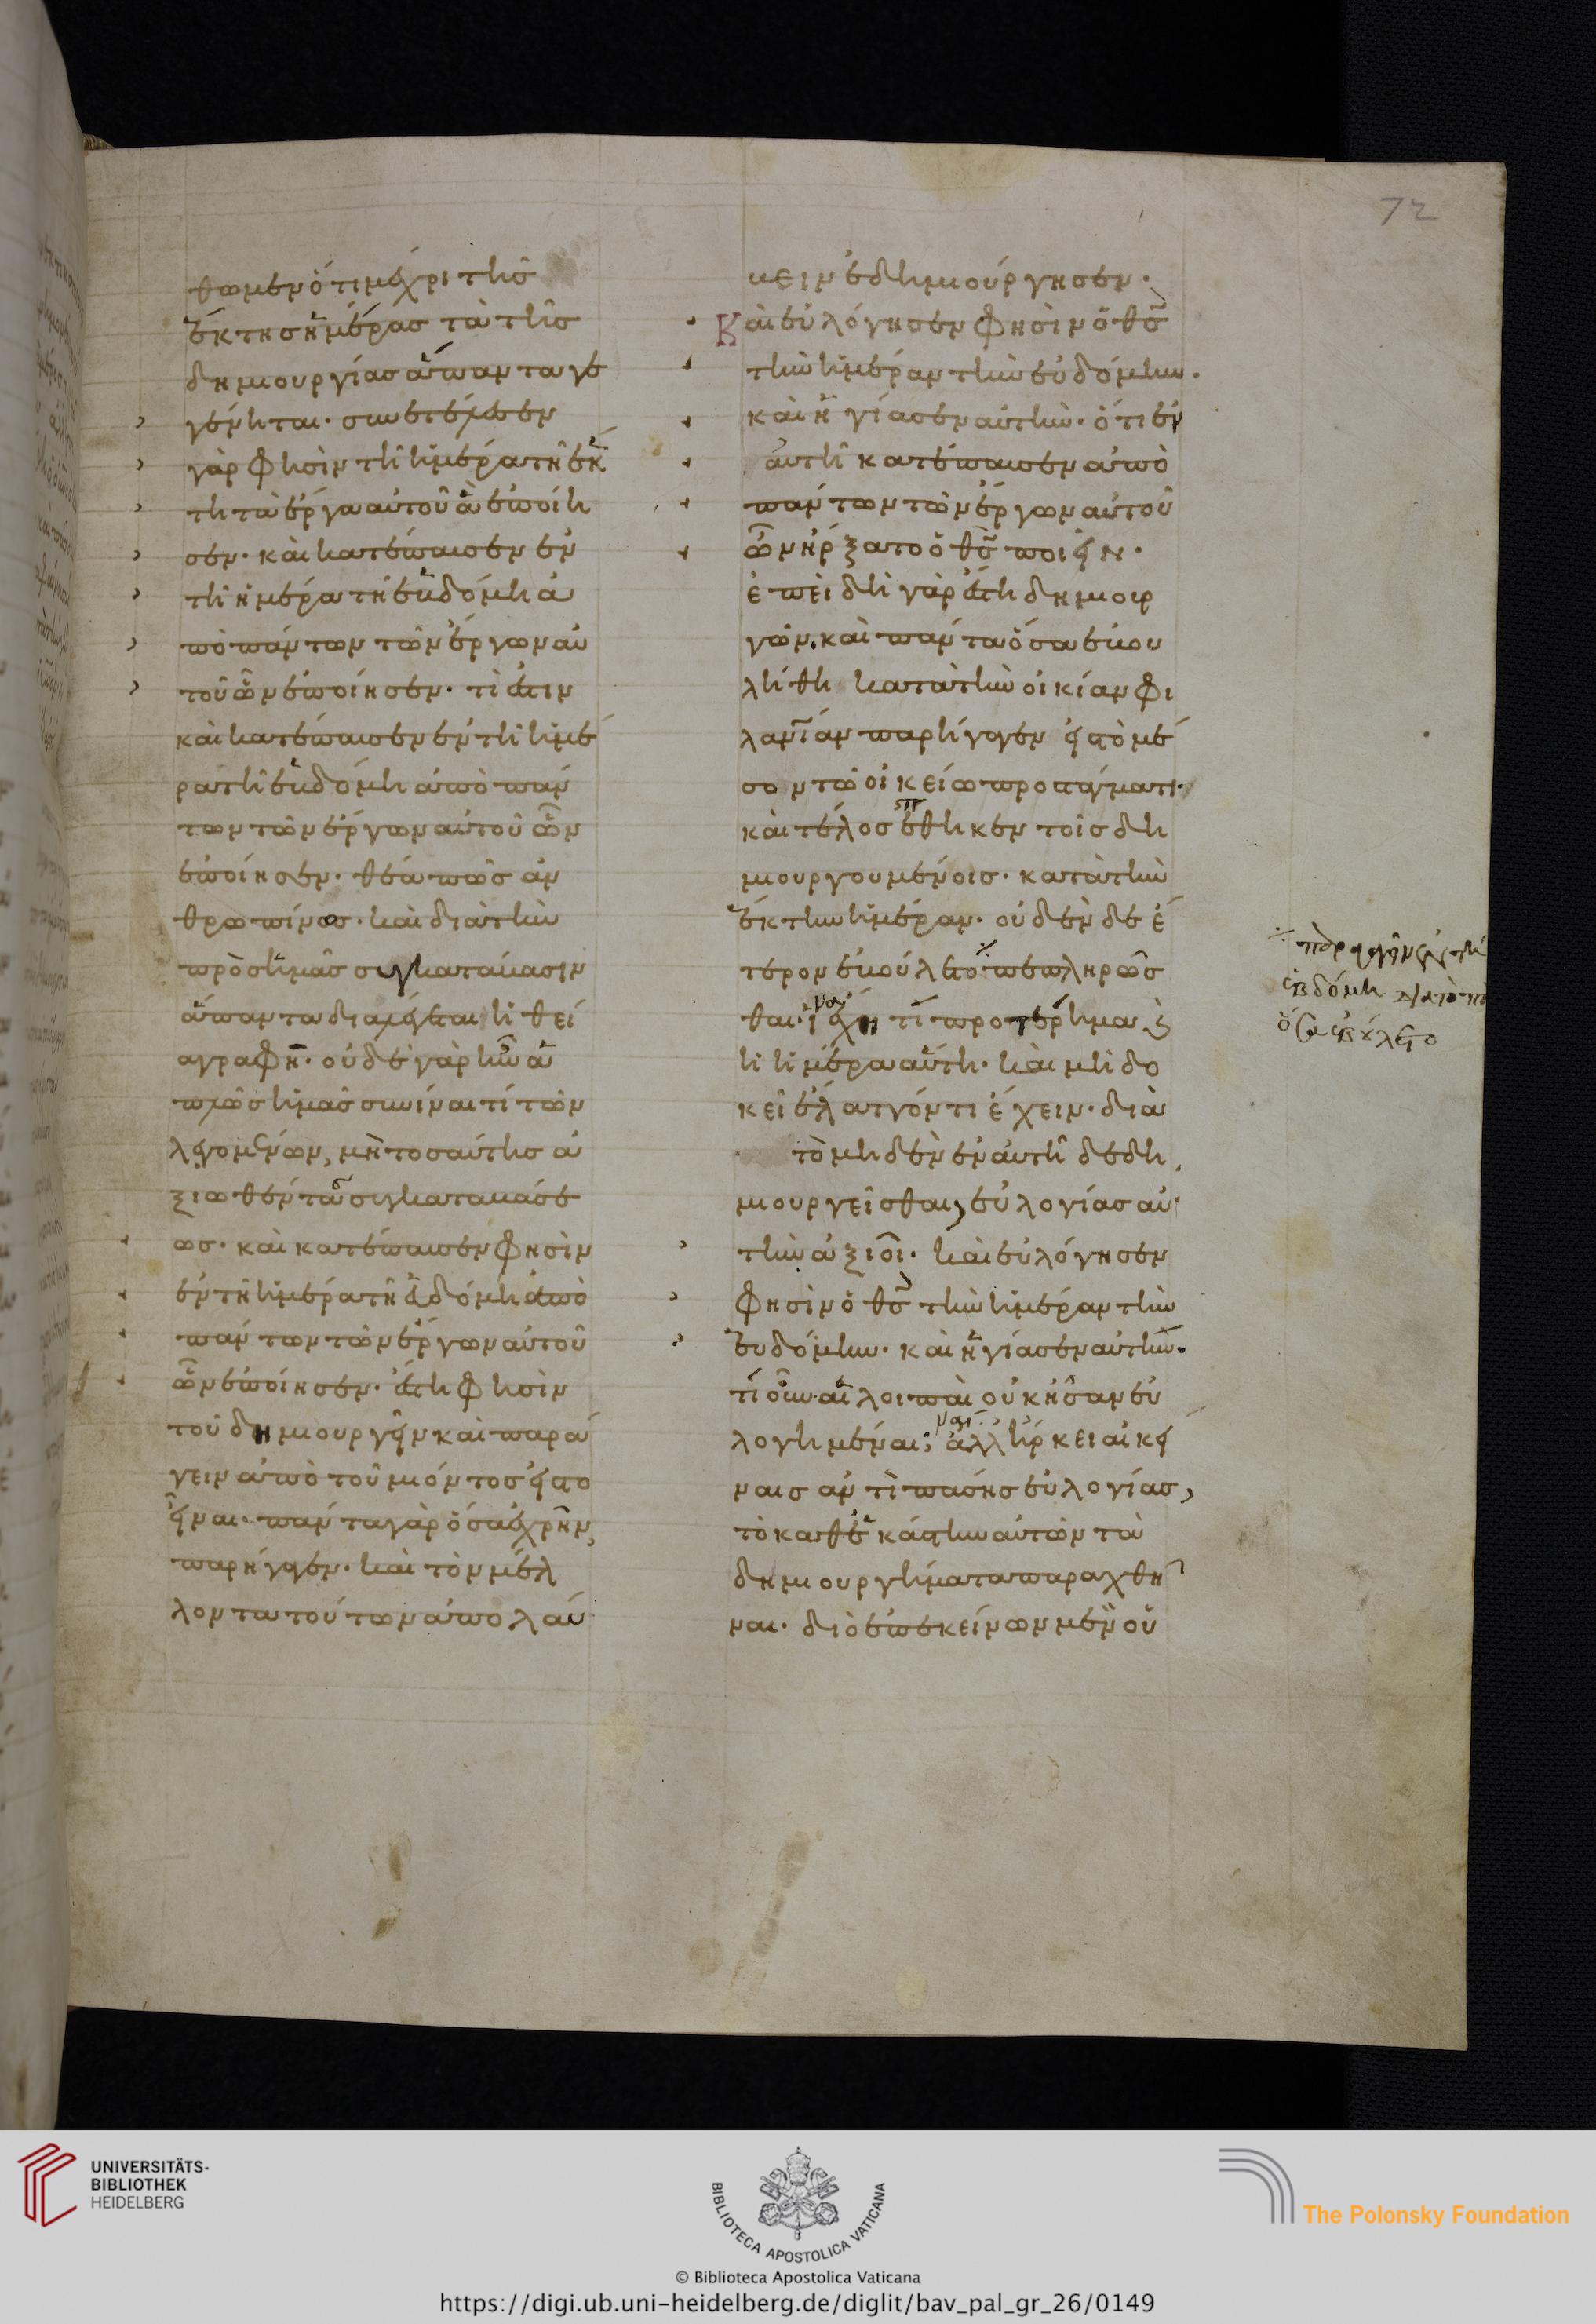 72
θωμεν ὅτι μέχρι τῆς
ἕκτης ἡμέρας τὰ τῆς
δημιουργίας ἅπαντα γε
γένηται. συνετέλεσεν
γάρ φησιν τῇ ἡμέρα τῇ ἕκ
τη τὰ ἔργα αὐτοῦ ἃ ἐποίη
σεν. καὶ κατέπαυσεν ἐν
τῇ ἡμέρα τῇ ἑβδόμη ἀ
πὸ πάντων τῶν ἔργων αὐ
τοῦ ὧν ἐποίησεν. τί ἐστιν
καὶ κατέπαυσεν ἐν τῇ ἡμέ
ρα τῇ ἑβδόμη ἀπὸ πάν
των τῶν ἔργων αὐτοῦ ὧν
ἐποίησεν. θέα πῶς ἀν
θρωπίνως. καὶ διὰ τὴν
πρὸς ἡμᾶς συγκατάβασιν
ἅπαντα διαλέγεται ἡ θεί
α γραφή. οὐδὲ γὰρ ἦν ἁ
πλῶς ἡμᾶς συνίναι τί τῶν
λεγομένων, μὴ τοσαύτης ἀ
ξιωθέντας συγκαταβάσε
ως. καὶ κατέπαυσεν φησὶν
ἐν τῇ ἡμέρα τῇ ἑβδόμη ἀπὸ
πάντων τῶν ἔργων αὐτοῦ
ὧν ἐποίησεν. ἔστη φησὶν
τοῦ δημιουργεῖν καὶ παρά
γειν ἀπὸ τοῦ μὴ ὄντος εἰς τὸ
εἶναι. πάντα γὰρ ὅσα ἐχρῆν,
παρήγαγεν. καὶ τὸν μέλ
λοντα τούτων ἀπολαύ
βειν ἐδημιούργησεν.
Καὶ εὐλόγησεν φησὶν ὁ θς
τὴν ἡμέραν τὴν ἑβδόμην.
καὶ ἡγίασεν αὐτήν. ὅτι ἐν
αὐτῇ κατέπαυσεν ἀπὸ
πάντων τῶν ἔργων αὐτοῦ
ὧν ἤρξατο ὁ θς ποιεῖν.
ἐπειδὴ γὰρ ἔστη δημιουρ
γῶν. καὶ πάντα ὅσα ἐβου
λήθη κατὰ τὴν οἰκίαν φι
λανίαν παρήγαγεν εἰς τὸ μέ
σον τῶ οἰκείω προστάγματι.
καὶ τέλος ἔθηκεν τοῖς δη
μιουργουμένοις. κατὰ τὴν
ἕκτην ἡμέραν. οὐδὲν δὲ ἕ
τερον ἐβούλετο πεπληρῶς
θαι. τί προτέρημα
ἡ ἡμέρα αὕτη. καὶ μὴ δο
κεῖ ἔλαττόν τι ἔχειν. διὰ
τὸ μηδὲν ἐν αὐτῇ δεδη
μιουργεῖσθαι, εὐλογίας αὐ
τὴν ἀξιοῖ. καὶ εὐλόγησεν
φησὶν ὁ θς τὴν ἡμέραν τὴν
ἑβδόμην. καὶ ἡγίασεν αὐτήν.
τί οὖν αἱ λοιπαὶ οὐκ ἦσαν εὐ
λογημέναι; ναί. ἀλλ ἤρκει αἰκεί
ναις ἀντὶ πάσης εὐλογίας,
τὸ καθ ἑκάστην αὐτῶν τὰ
δημιουργήματα παραχθῆ
ναι. διὸ ἐπ ἐκείνων μὲν οὐ
ἑβδόμη διὰ τὸ
ὅσα ἐβούλετο
UNIVERSITÄTS-
BIBLIOTHEK
HEIDELBERG
BIBLIOTECA APOSTOLICA VATICANA
The Polonsky Foundation
© Biblioteca Apostolica Vaticana
https://digi.ub.uni-heidelberg.de/diglit/bav_pal_gr_26/0149